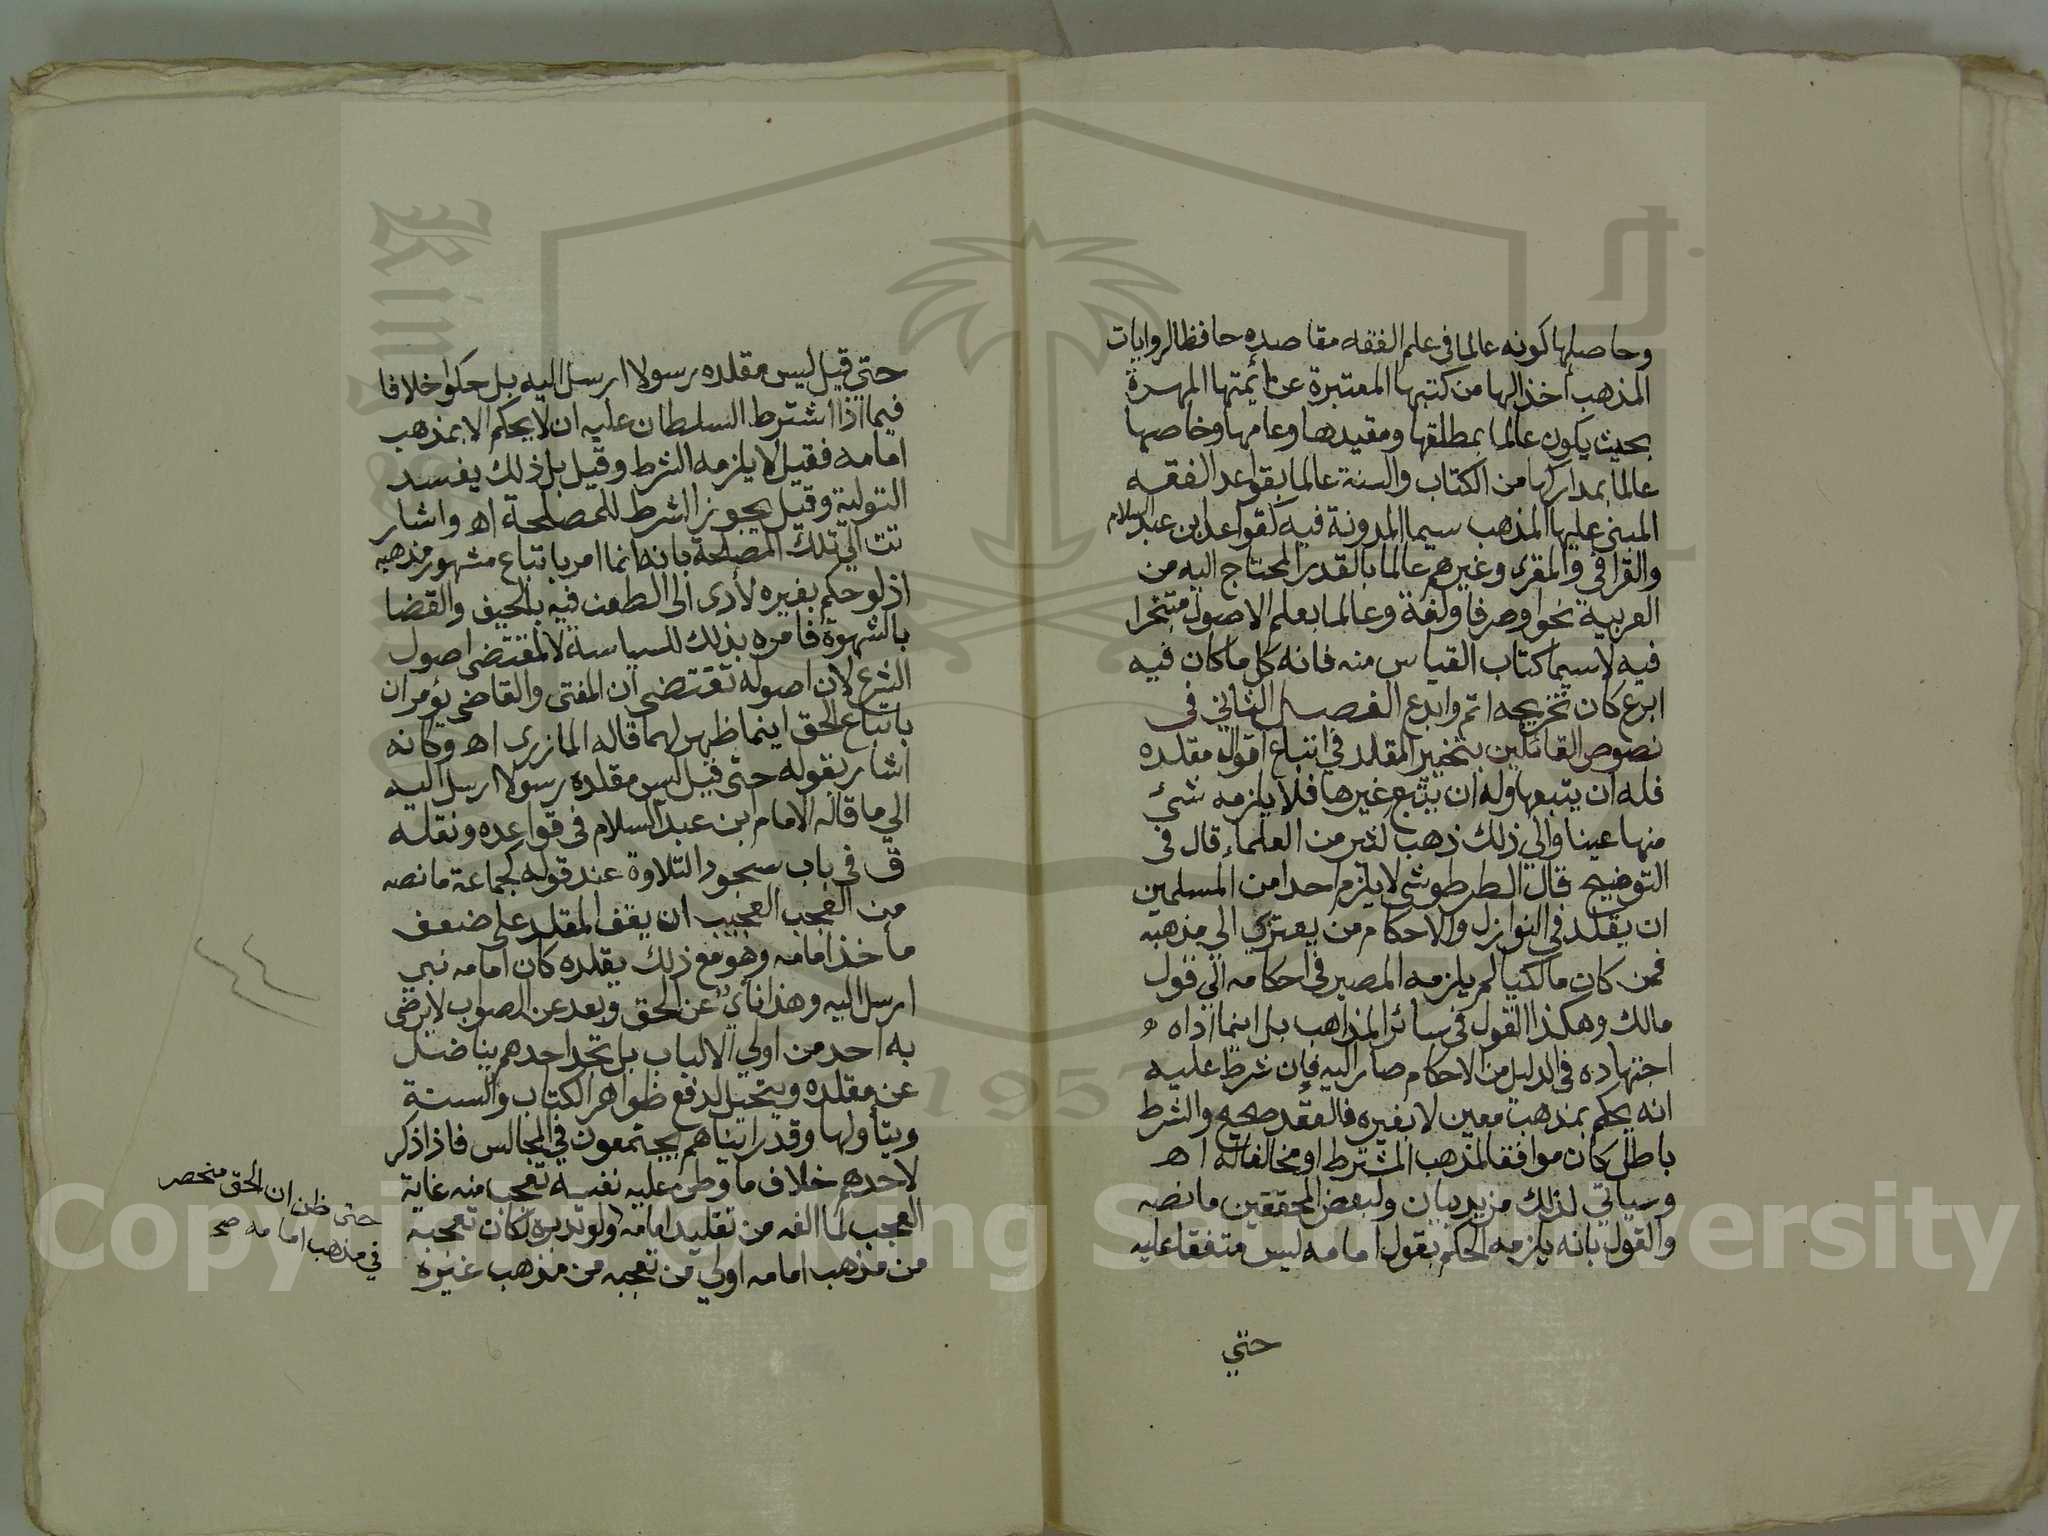 وحاصلها كونه عالما في علم الفقه مقاصده حافظا لروايات
المذهب آخذا لها من كتبها المعتبرة عن أئمتها المهرة
بحيث يكون عالما بمطلقها ومقيدها وعامها وخاصها
عالما بمداركها من الكتاب والسنة عالما بقواعد الفقه
المبني عليها المذهب سيما المدونة فيه كقواعد ابن عبد السلام
والقرافي والمقري وغيرهم عالما بالقدر المحتاج اليه من
العربية نحوا وصرفا ولغة وعالما بعلم الاصول متبحرا
فيه لاسيما كتاب القياس منه فانه كل ما كان فيه
ابرع كان تخريجه اتم وابدع الفصل الثاني في
نصوص القائلين بتخيير المقلد في اتباع اقوال مقلده
فله ان يتبعها وله ان يتبع غيرها فلا يلزمه شيء
منها عينا والي ذلك ذهب كثير من العلماء قال في
التوضيح قال الطرطوشي لا يلزم احدا من المسلمين
ان يقلد في النوازل والاحكام من يعتزي الي مذهبه
فمن كان مالكيا لم يلزمه المصير في احكامه الي قول
مالك وهكذا القول في سائر المذاهب بل اينما اداه
اجتهاده في الدليل من الاحكام صار اليه فإن شرط عليه
انه يحكم بمذهب معين لا بغيره فالعقد صحيح والشرط
باطل كان موافقا لمذهب المشترط او مخالفا له اهـ
وسياتي لذلك مزيد بيان ولبعض المحققين ما نصه
والقول بانه يلزمه الحكم بقول امامه ليس متفقا عليه
حتي
حتي قيل ليس مقلده رسولا ارسل اليه بل حكوا خلافا
فيما اذا اشترط السلطان عليه ان لا يحكم الا بمذهب
امامه فقيل لا يلزمه الشرط وقيل بل ذلك يفسد
التولية وقيل يجوز الشرط للمصلحة اهـ واشار
تت الي تلك المصلحة بانه انما امر باتباع مشهور مذهبه
اذ لو حكم بغيره لأدى الى الطعن فيه بالحيف والقضا
بالشهوة فامره بذلك للسياسة لا لمقتضى اصول
الشرع لان اصوله تقتضي ان المفتي والقاضي يؤمران
باتباع الحق اينما ظهر لهما قاله المازري اهـ وكانه
اشار بقوله حتى قيل ليس مقلده رسولا ارسل اليه
الي ما قاله الامام ابن عبد السلام في قواعده ونقله
ق في باب سجود التلاوة عند قوله كجماعة ما نصه
من العجب العجيب ان يقف المقلد على ضعف
مأخذ امامه وهو مع ذلك يقلده كان امامه نبي
ارسل اليه وهذا نأي عن الحق وبعد عن الصواب لا يرضي
به احد من اولي الالباب بل تجد احدهم يناضل
عن مقلده ويتحيل لدفع ظواهر الكتاب والسنة
ويتأولها وقد رايناهم يجتمعون في المجالس فاذا ذكر
لاحدهم خلاف ما وطن عليه نفسه تعجب منه غاية
العجب لما الفه من تقليد امامه ولو تدبره لكان تعجبه
من مذهب امامه اولي من تعجبه من مذهب غيره
حتى ظن ان الحق منحصر
في مذهب امامه صح